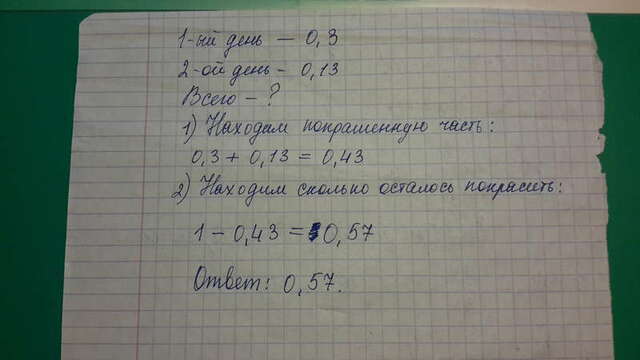 1-ый день — 0,3
2-ой день - 0,13
Всего - ?
1) Находим покрашенную часть:
0,3 + 0,13 = 0,43
2) Находим сколько осталось покрасить:
1 - 0,43 = 0,57
Ответ: 0,57.